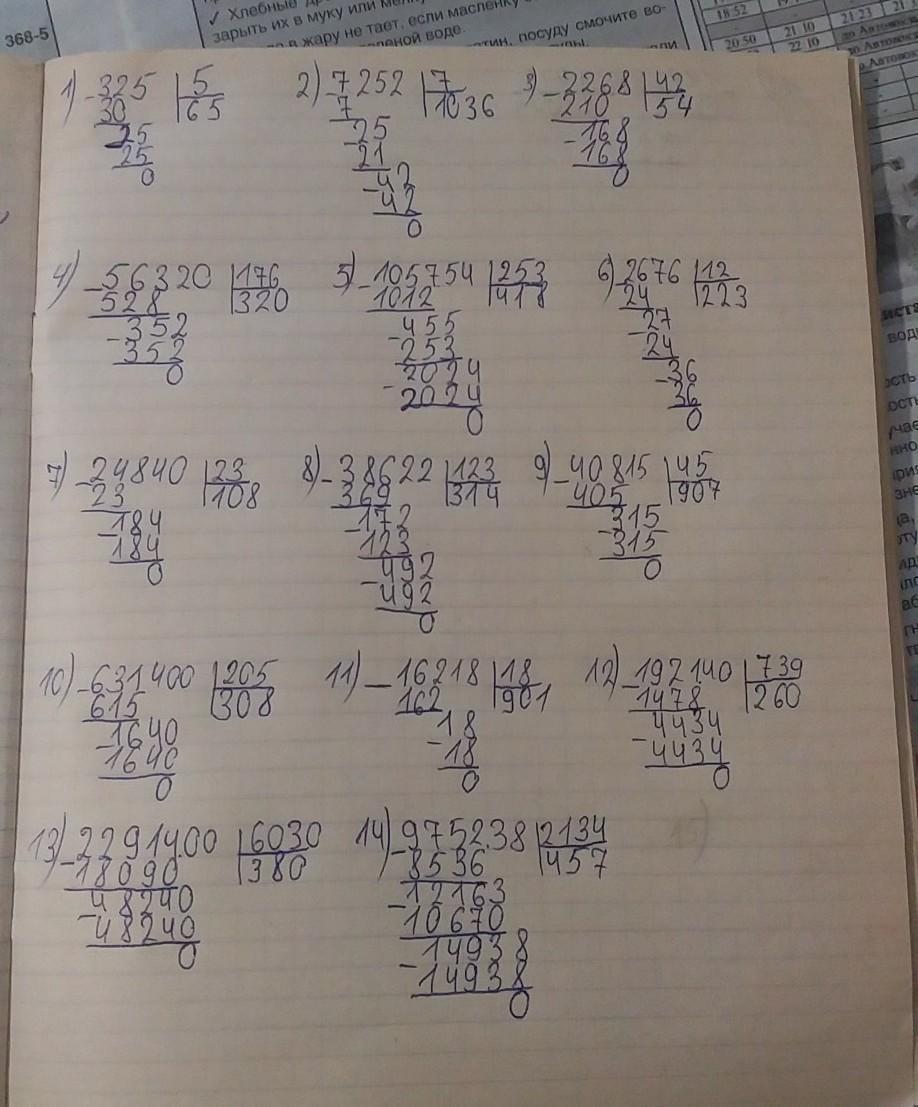 368-5
✓ Хлебные
зарыть их в муку или
в жару не тает, если масленку
посуду смочите во-
леной воде.
18 52
20 50 21 10 21 23
22 10 до Автовокз
1) -325 |5
30 |65
-25
25
0
2) -7252 |7
7 |1036
-25
21
-42
42
0
3) -2268 |42
210 |54
-168
168
0
4) -56320 |176
528 |320
-352
352
0
5) -105754 |253
1012 |418
-455
253
-2024
2024
0
6) -2676 |12
24 |223
-27
24
-36
36
0
7) -24840 |23
23 |108
-184
184
0
8) -38622 |123
369 |314
-172
123
-492
492
0
9) -40815 |45
405 |907
-315
315
0
10) -631400 |205
615 |308
-1640
1640
0
11) -16218 |18
162 |901
-18
18
0
12) -192140 |739
1478 |260
-4434
4434
0
13) -2291400 |6030
18090 |380
-48240
48240
0
14) -975238 |2134
8536 |457
-12163
10670
-14938
14938
0
15)